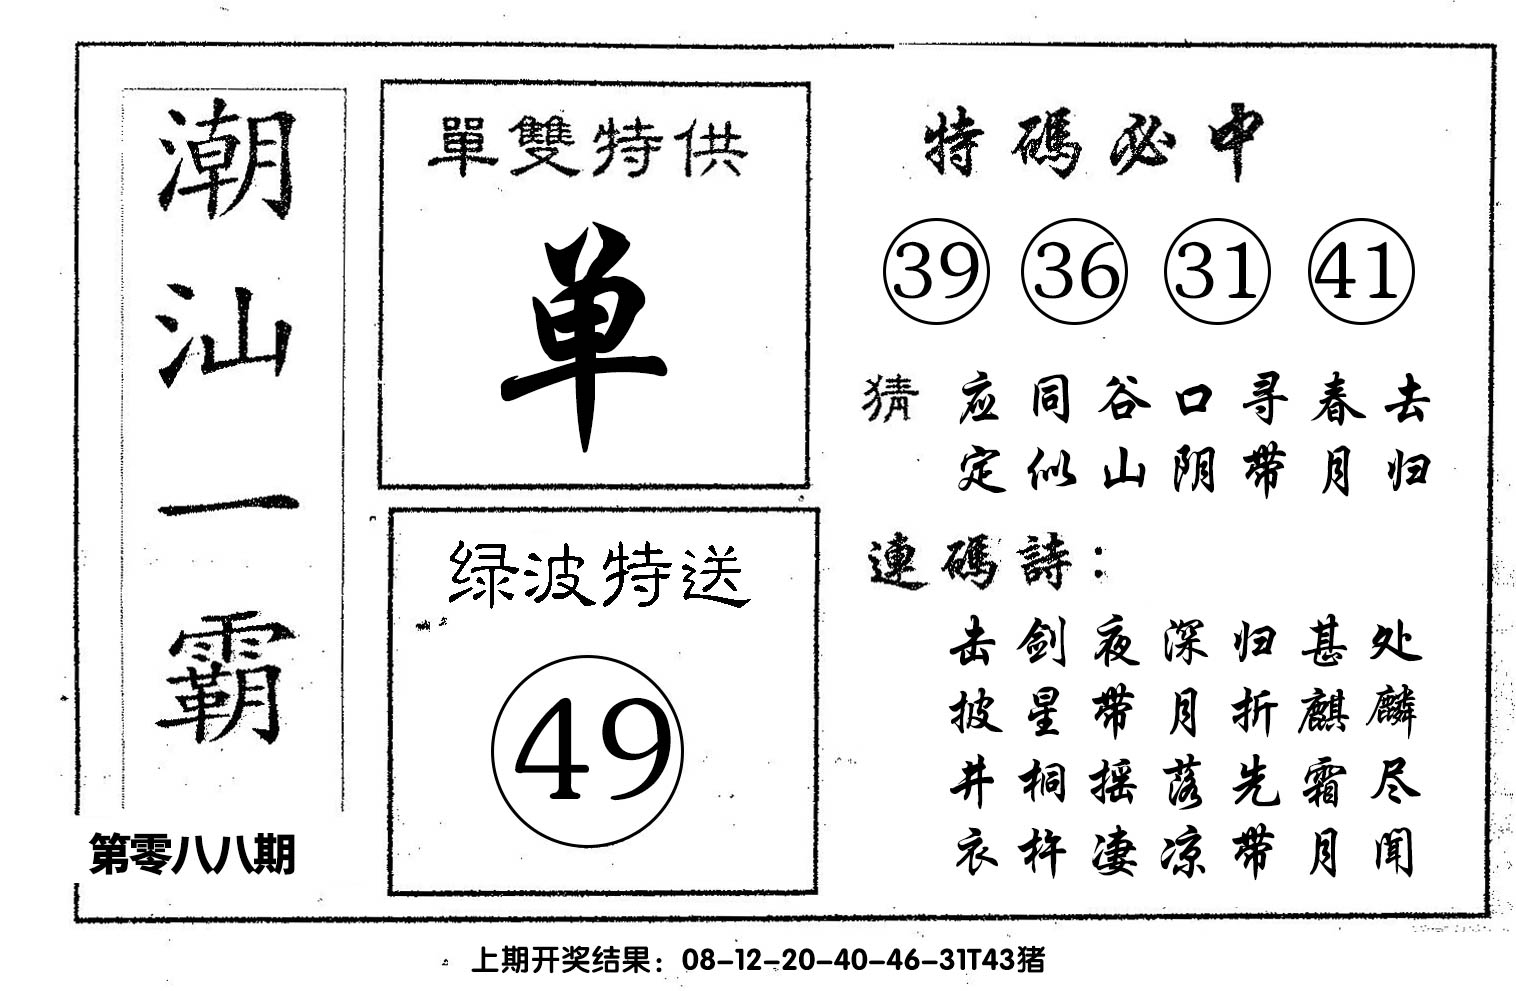 潮汕一霸
第零八八期
單雙特供
单
绿波特送
49
特碼必中
39 36 31 41
猜 应同谷口寻春去
定似山阴带月归
連碼詩：
击剑夜深归甚处
披星带月折麒麟
井桐摇落先霜尽
衣杵凄凉带月闻
上期开奖结果：08-12-20-40-46-31T43猪